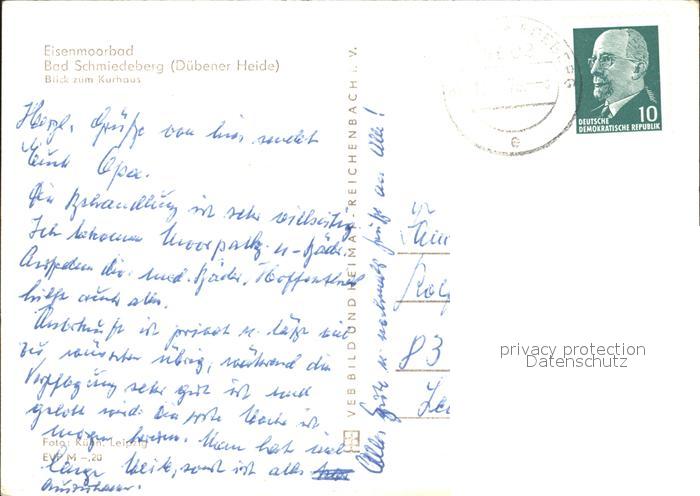 Eisenmoorbad
Bad Schmiedeberg (Dübener Heide)
Blick zum Kurhaus
Herzl. Grüße von hier sendet
Euch Opa.
Die Behandlung ist sehr vielseitig.
Ich bekomme Moorpackg. u. Bäder.
Ausserdem div. med. Bäder. Hoffentlich
hilft auch alles.
Unterkunft ist privat u. läßt viel
zu wünschen übrig, während die
Verpflegung sehr gut ist und
gelobt wird. Die erste Woche ist
morgen herum. Man hat viel
lange Weile, sonst ist alles
Foto: Kühn, Leipzig
EVP M -,20
VEB BILD UND HEIMAT REICHENBACH I. V.
Alles Gute u. nochmals Grüße an Alle!
Rolf
83
10
DEUTSCHE
DEMOKRATISCHE REPUBLIK
e
privacy protection
Datenschutz